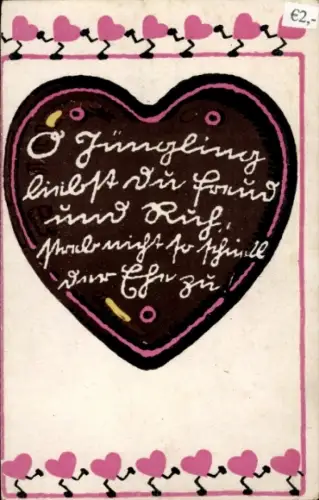 €2,-
O Jüngling
liebst Du Freud
und Ruh,
strebe nicht so schnell
der Ehe zu!